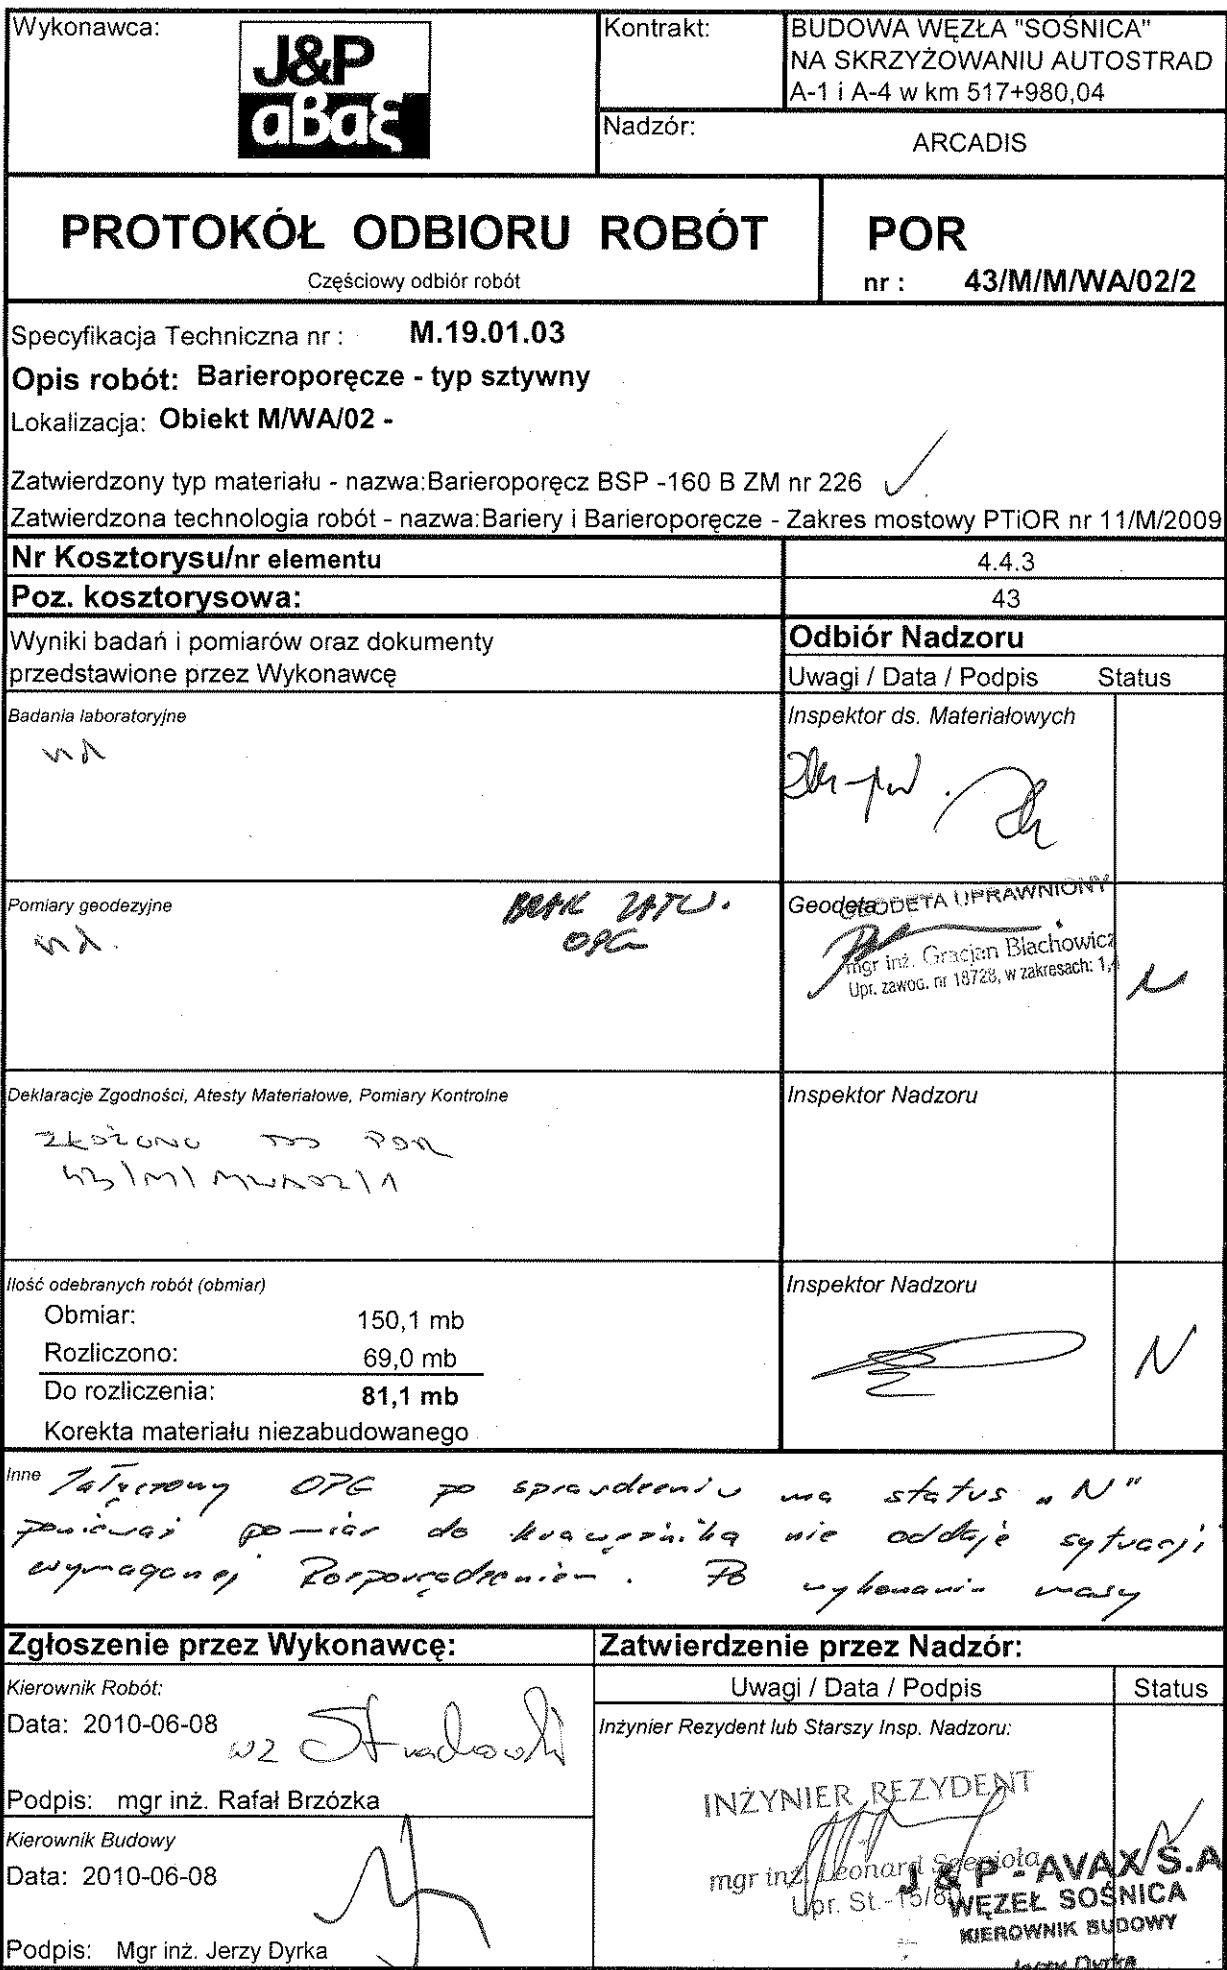 Wykonawca:
J&P
αβαξ
Kontrakt:
BUDOWA WĘZŁA "SOŚNICA"
NA SKRZYŻOWANIU AUTOSTRAD
A-1 i A-4 w km 517+980,04
Nadzór:
ARCADIS
PROTOKÓŁ ODBIORU ROBÓT
Częściowy odbiór robót
POR
nr : 43/M/M/WA/02/2
Specyfikacja Techniczna nr : M.19.01.03
Opis robót: Barieroporęcze - typ sztywny
Lokalizacja: Obiekt M/WA/02 -
Zatwierdzony typ materiału - nazwa:Barieroporęcz BSP -160 B ZM nr 226
Zatwierdzona technologia robót - nazwa:Bariery i Barieroporęcze - Zakres mostowy PTiOR nr 11/M/2009
Nr Kosztorysu/nr elementu 4.4.3
Poz. kosztorysowa: 43
Wyniki badań i pomiarów oraz dokumenty
przedstawione przez Wykonawcę
Odbiór Nadzoru
Uwagi / Data / Podpis Status
Badania laboratoryjne
nd
Inspektor ds. Materiałowych
Pomiary geodezyjne
nd.
BRAK ZATW.
OPG
Geodeta
GEODETA UPRAWNIONY
mgr inż. Gracjan Blachowicz
Upr. zawod. nr 18728, w zakresach: 1,4
N
Deklaracje Zgodności, Atesty Materiałowe, Pomiary Kontrolne
ZŁOŻONO DO POR
43/M/MWA02/1
Inspektor Nadzoru
Ilość odebranych robót (obmiar)
Obmiar: 150,1 mb
Rozliczono: 69,0 mb
Do rozliczenia: 81,1 mb
Korekta materiału niezabudowanego
Inspektor Nadzoru
N
Inne Załączony OPG po sprawdzeniu ma status "N"
ponieważ pomiar do krawężnika nie oddaje sytuacji
wymaganej Rozporządzeniem. Po wykonaniu masy
Zgłoszenie przez Wykonawcę:
Zatwierdzenie przez Nadzór:
Uwagi / Data / Podpis Status
Kierownik Robót:
Data: 2010-06-08
wz
Podpis: mgr inż. Rafał Brzózka
Inżynier Rezydent lub Starszy Insp. Nadzoru:
INŻYNIER REZYDENT
mgr inż. Leonard
Upr. St.-15/80
N
Kierownik Budowy
Data: 2010-06-08
Podpis: Mgr inż. Jerzy Dyrka
J & P - AVAX S.A
WĘZEŁ SOŚNICA
KIEROWNIK BUDOWY
Jerzy Dyrka